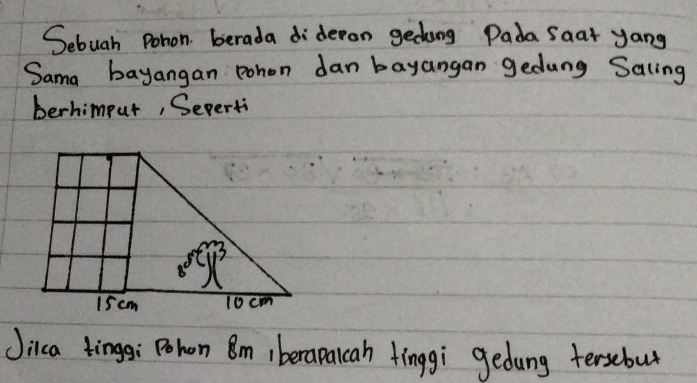 Sebuah Pohon berada di depan gedung Pada saat yang
Sama bayangan pohon dan bayangan gedung Saling
berhimput, Seperti
15 cm
10 cm
Jika tinggi Pohon 8m, berapakah tinggi gedung tersebut